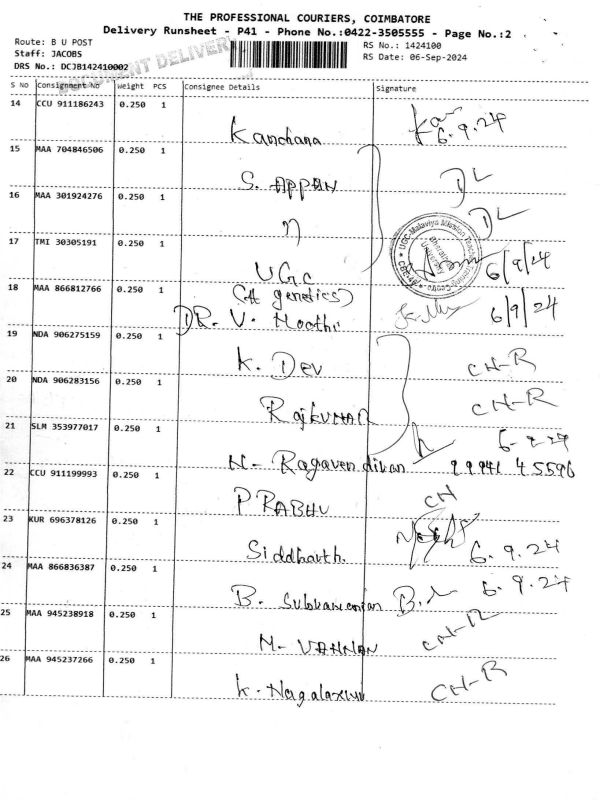 THE PROFESSIONAL COURIERS, COIMBATORE
Delivery Runsheet - P41 - Phone No.:0422-3505555 - Page No.:2
Route: B U POST
RS No.: 1424100
Staff: JACOBS
RS Date: 06-Sep-2024
DRS No.: DCJB142410002
DOCUMENT DELIVERY
S No Consignment No Weight PCS Consignee Details Signature
14 CCU 911186243 0.250 1
Kanchana 6.9.24
15 MAA 704846506 0.250 1
S. APPAN DL
16 MAA 301924276 0.250 1
n DL
17 TMI 30305191 0.250 1
UGC 6/9/24
18 MAA 866812766 0.250 1
(A genetics)
DR. V. Moothi 6/9/24
19 NDA 906275159 0.250 1
K. Dev CH-R
20 NDA 906283156 0.250 1
RajKUMAR CH-R
21 SLM 353977017 0.250 1
N- Ragavendiran
22 CCU 911199993 0.250 1
PRABHU CH
23 KUR 696378126 0.250 1
Siddharth. 6.9.24
24 MAA 866836387 0.250 1
B. Subramanian 6.9.24
25 MAA 945238918 0.250 1
M- VANNAN CH-R
26 MAA 945237266 0.250 1
K. Nagalaxmi CH-R